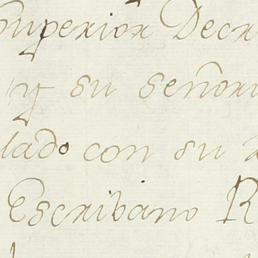 Superior Decr
y su señori
dado con su
Escribano R